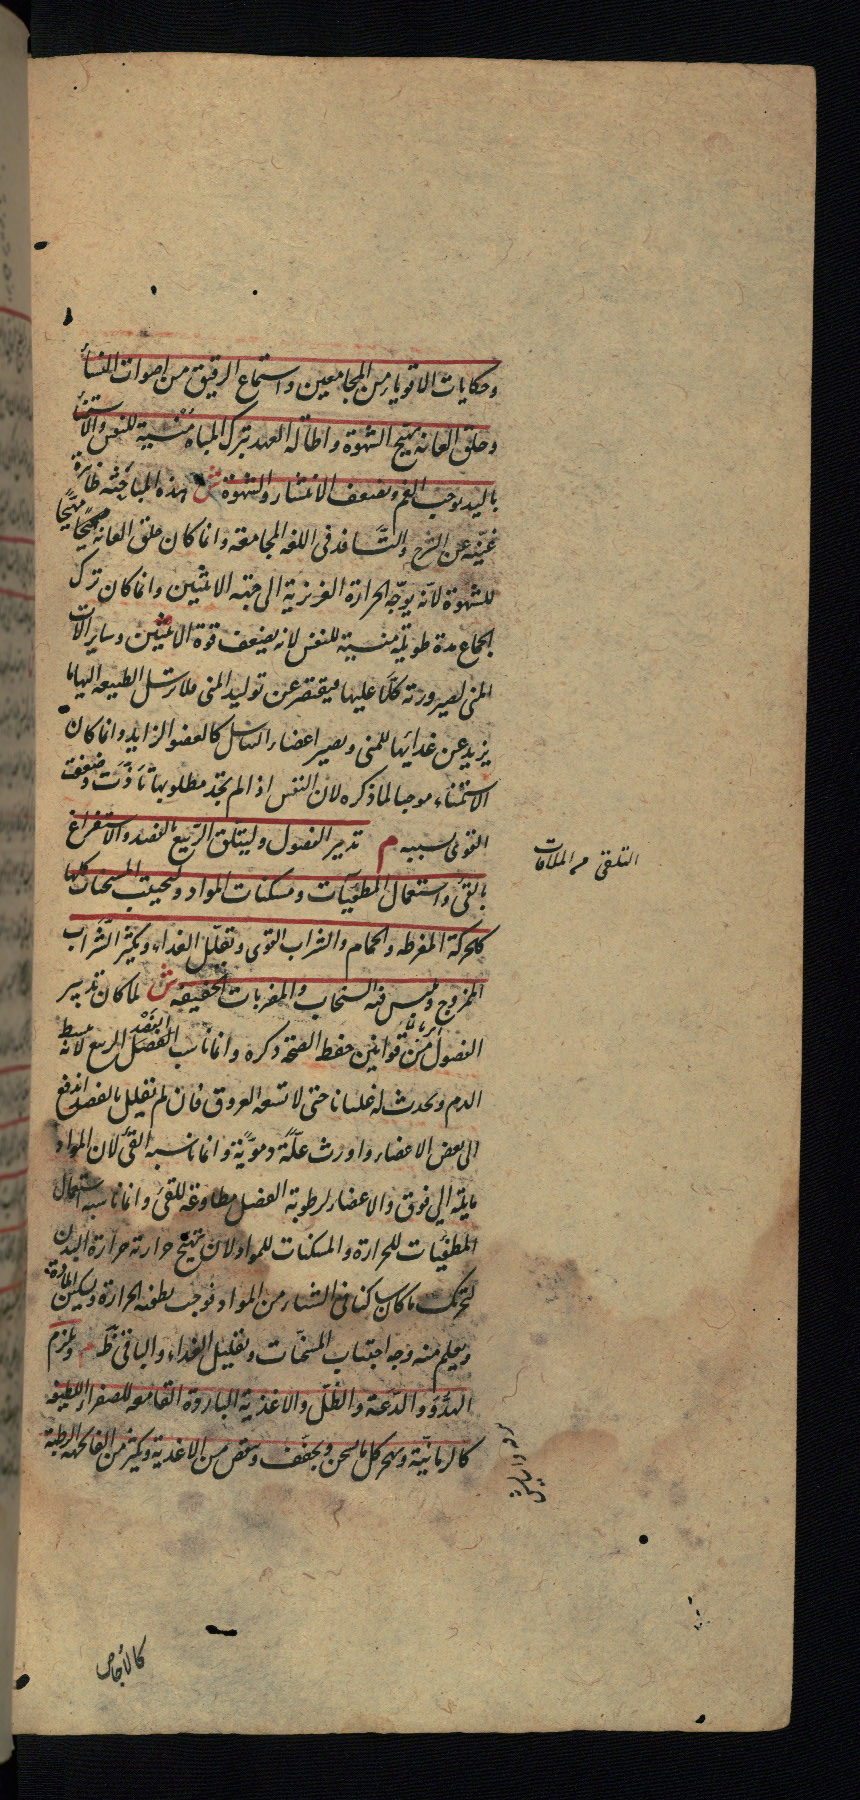 وحكايات الاقوياء من المجامعين واستماع الرقيق من اصوات النساء
وحلق العانة يهيج الشهوة واطالة العهد بترك الباه منسية للنفس والاستمناء
باليد يوجب الغم ويضعف الانتشار والشهوة ش هذه المباحث ظاهرة
غنية عن الشرح والتسافد فى اللغة المجامعة وانما كان حلق العانة مهيجا
للشهوة لانه يوجه الحرارة الغريزية الى جهة الانثيين وانما كان ترك
الجماع مدة طويلة منسية للنفس لانه يضعف قوة الانثيين وساير الات
المنى لصيرورته كلا عليها فيقتصر عن توليد المنى فلا ترسل الطبيعة اليها ما
يزيد عن غدائها للمنى ويصير اعضاء التناسل كالعضو الزايد وانما كان
الاستمناء موجبا لما ذكره لان النفس اذا لم تجد مطلوبها تأذت وضعفت
القوى بسببه م تدبير الفصول وليتلق الربيع بالفصد والاستفراغ
بالقئ واستعمال المطفيآت ومسكنات المواد وليجتنب المسخنات كلها
كالحركة المفرطة والحمام والشراب القوى وتقلل الغداء ويكثر الشراب
الممزوج ويلبس فيه السنجاب والمضربات الخفيفة ش لما كان تدبير
الفصول من قوانين حفظ الصحة ذكره وانما ناسب الفصد الربيع لانه
الدم ويحدث له غليانا حتى لا تسعه العروق فان لم تقلل بالفصد اندفع
الى بعض الاعضاء واورث علة دموية وانما ناسبه القئ لان المواد
مايلة الى فوق والاعضاء لرطوبة الفصل مطاوعة للقئ وانما ناسبه استعمال
المطفيات للحرارة والمسكنات للمواد لان تهيج حرارته حرارة البدن
لتحرك ما كان ساكنا فى الشتاء من المواد فوجب تطفية الحرارة وتسكين المادة
ويعلم منه وجه اجتناب المسخنات وتقليل الغداء والباقى ظ م ويلزم
الهدؤ والدعة والظل والاغذية الباردة القامعة للصفراء اللطيفة
كالرمانية ويهجر كل ما يسخن ويجفف وينقص من الاغدية ويكثر من الفاكهة الرطبة
التلقى هو الملاقات
كالاجاص